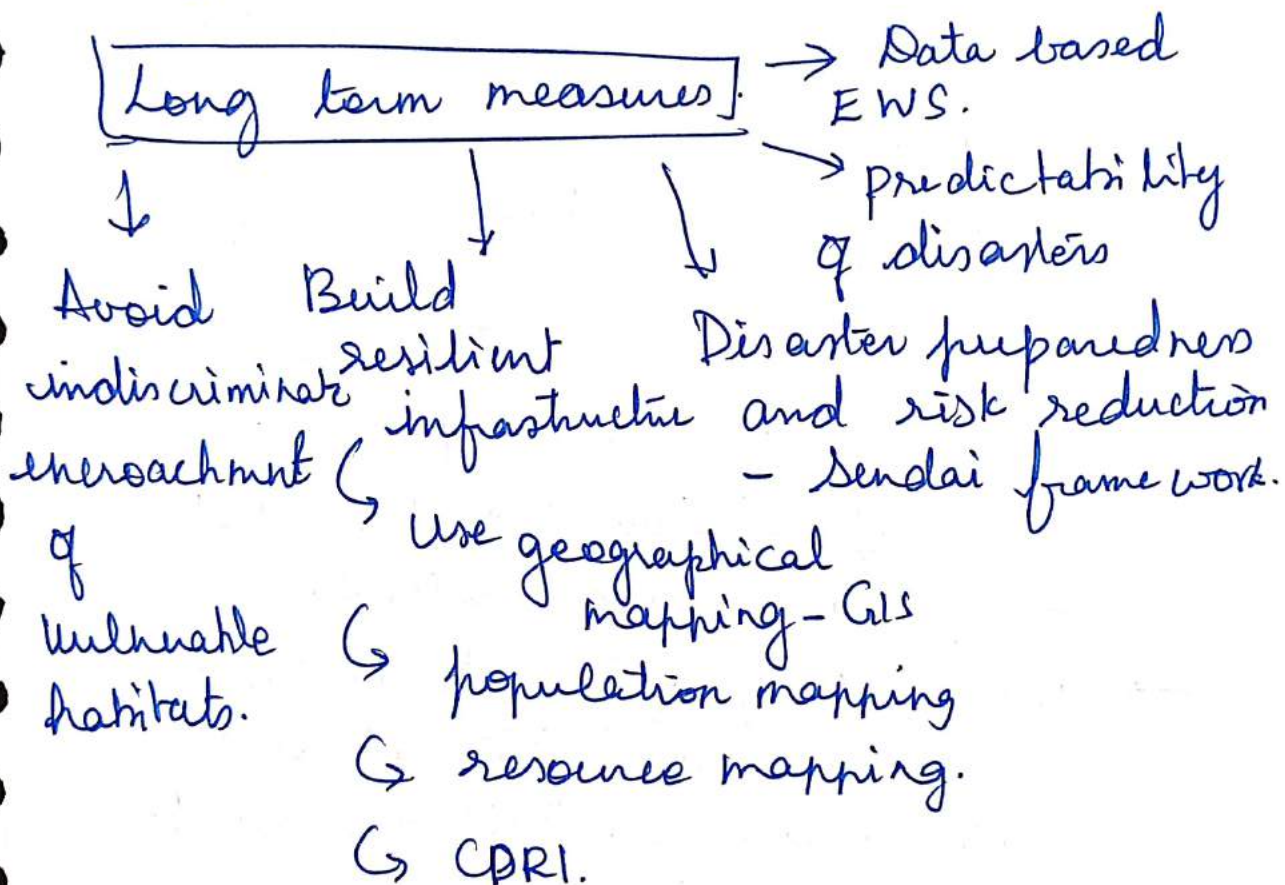 Long term measures.
→ Data based
EWS.
→ predictability
of disasters
Avoid
indiscriminate
encroachment
of
vulnerable
habitats.
Build
resilient
infrastructure
↳ use geographical
mapping - GIS
↳ population mapping
↳ resource mapping.
↳ CDRI.
Disaster preparedness
and risk reduction
- Sendai frame work.